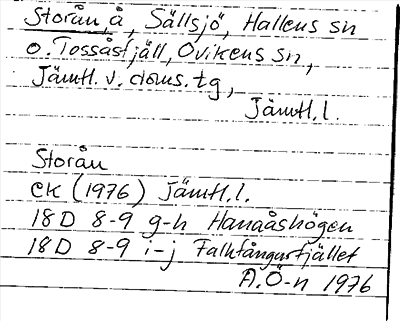 Storån, å, Sällsjö, Hallens sn
o. Tossåsfjäll, Ovikens sn,
Jämtl. v. doms. tg,
Jämtl. l.
Storån
EK (1976) Jämtl. l.
18D 8-9 g-h Hanaåshögen
18D 8-9 i-j Falkfångarfjället
A.Ö-n 1976